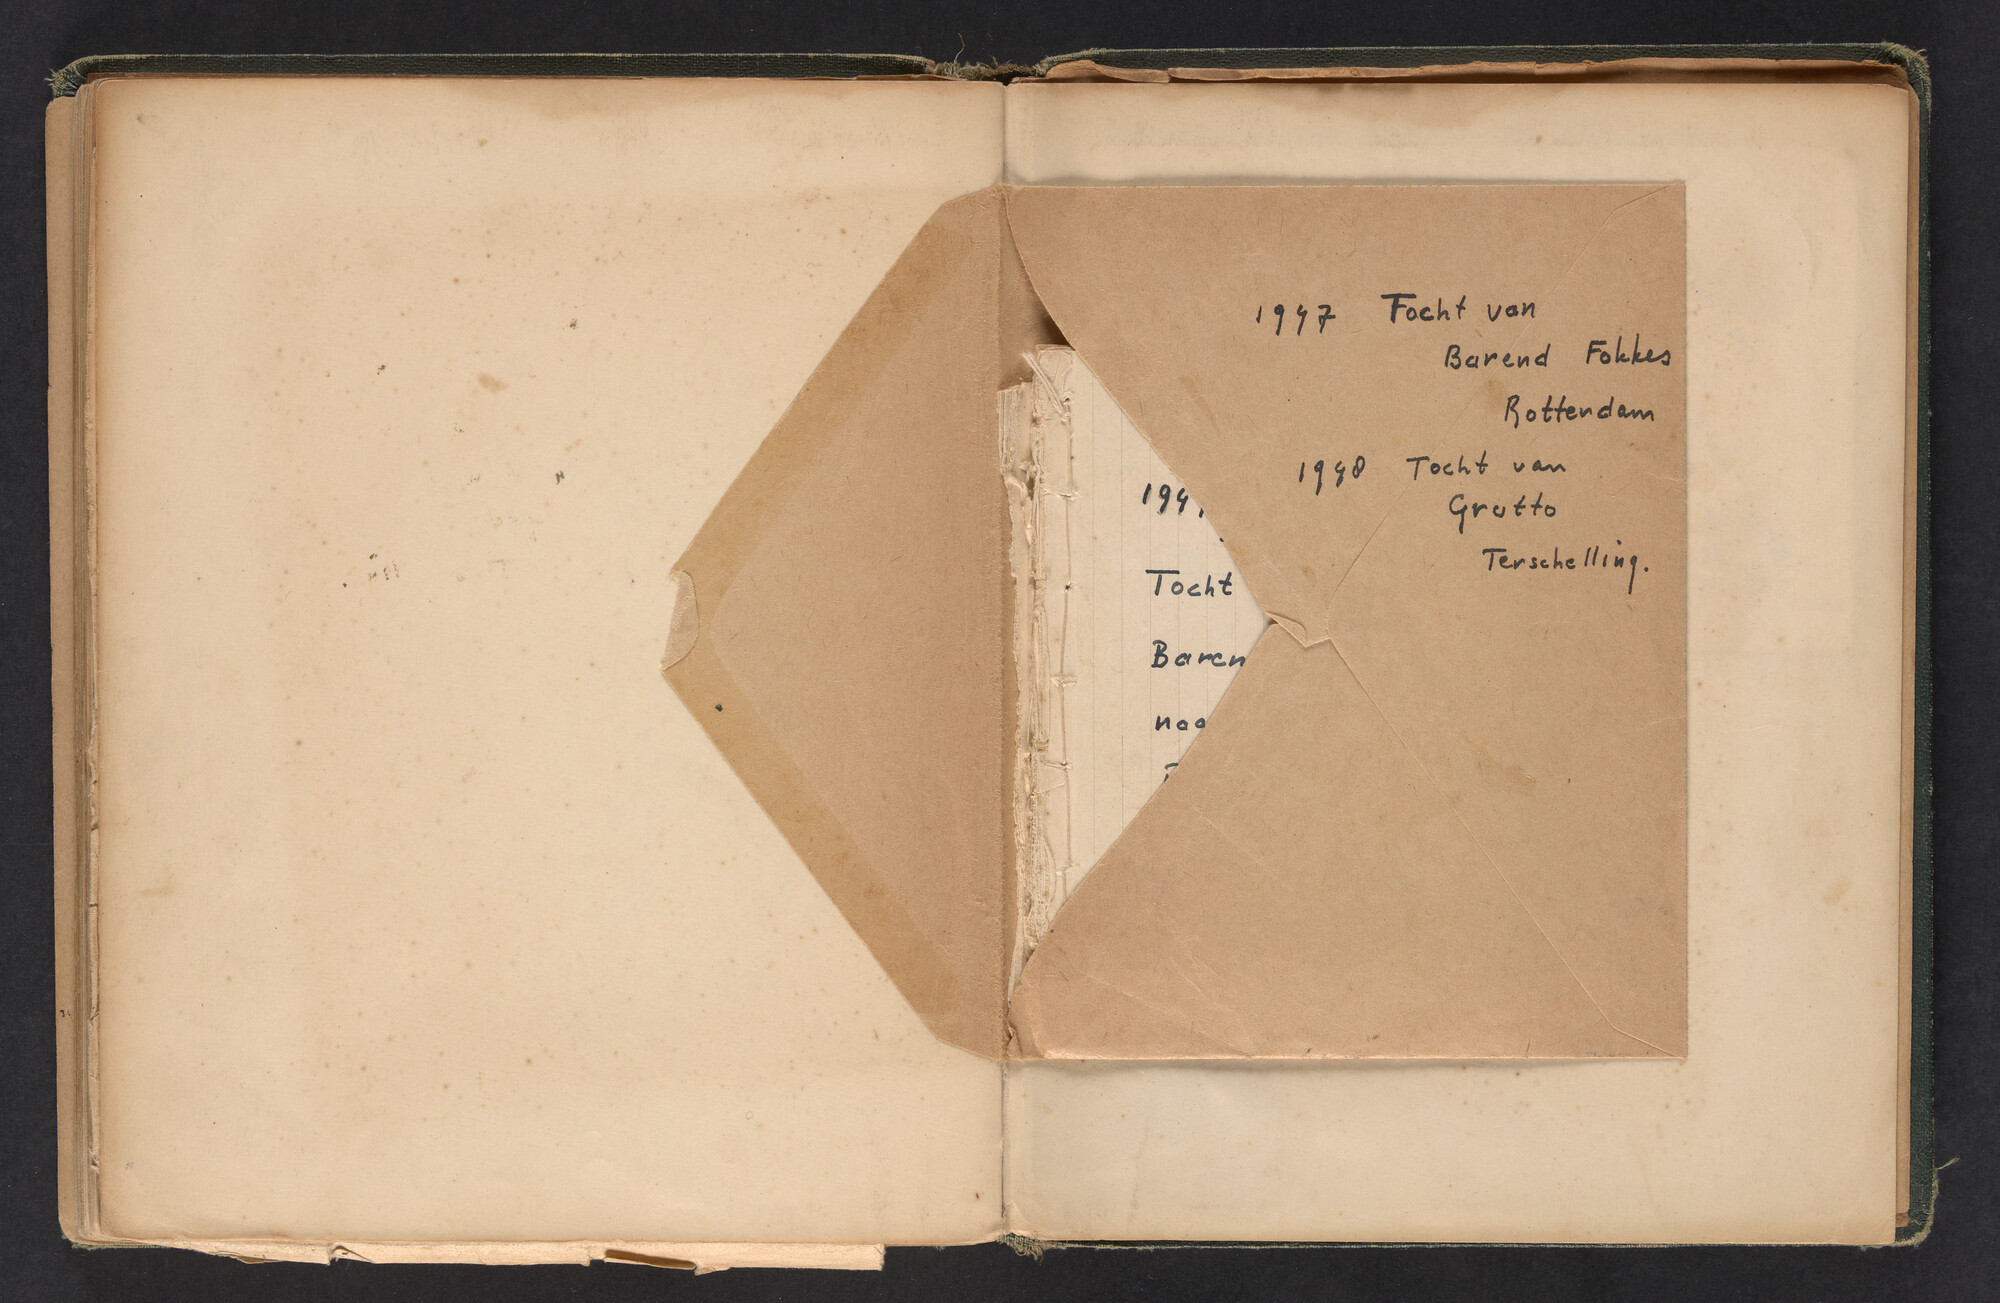 1947 Tocht van
Barend Fokkes
Rotterdam
1948 Tocht van
Grutto
Terschelling.
194
Tocht
Baren
naa